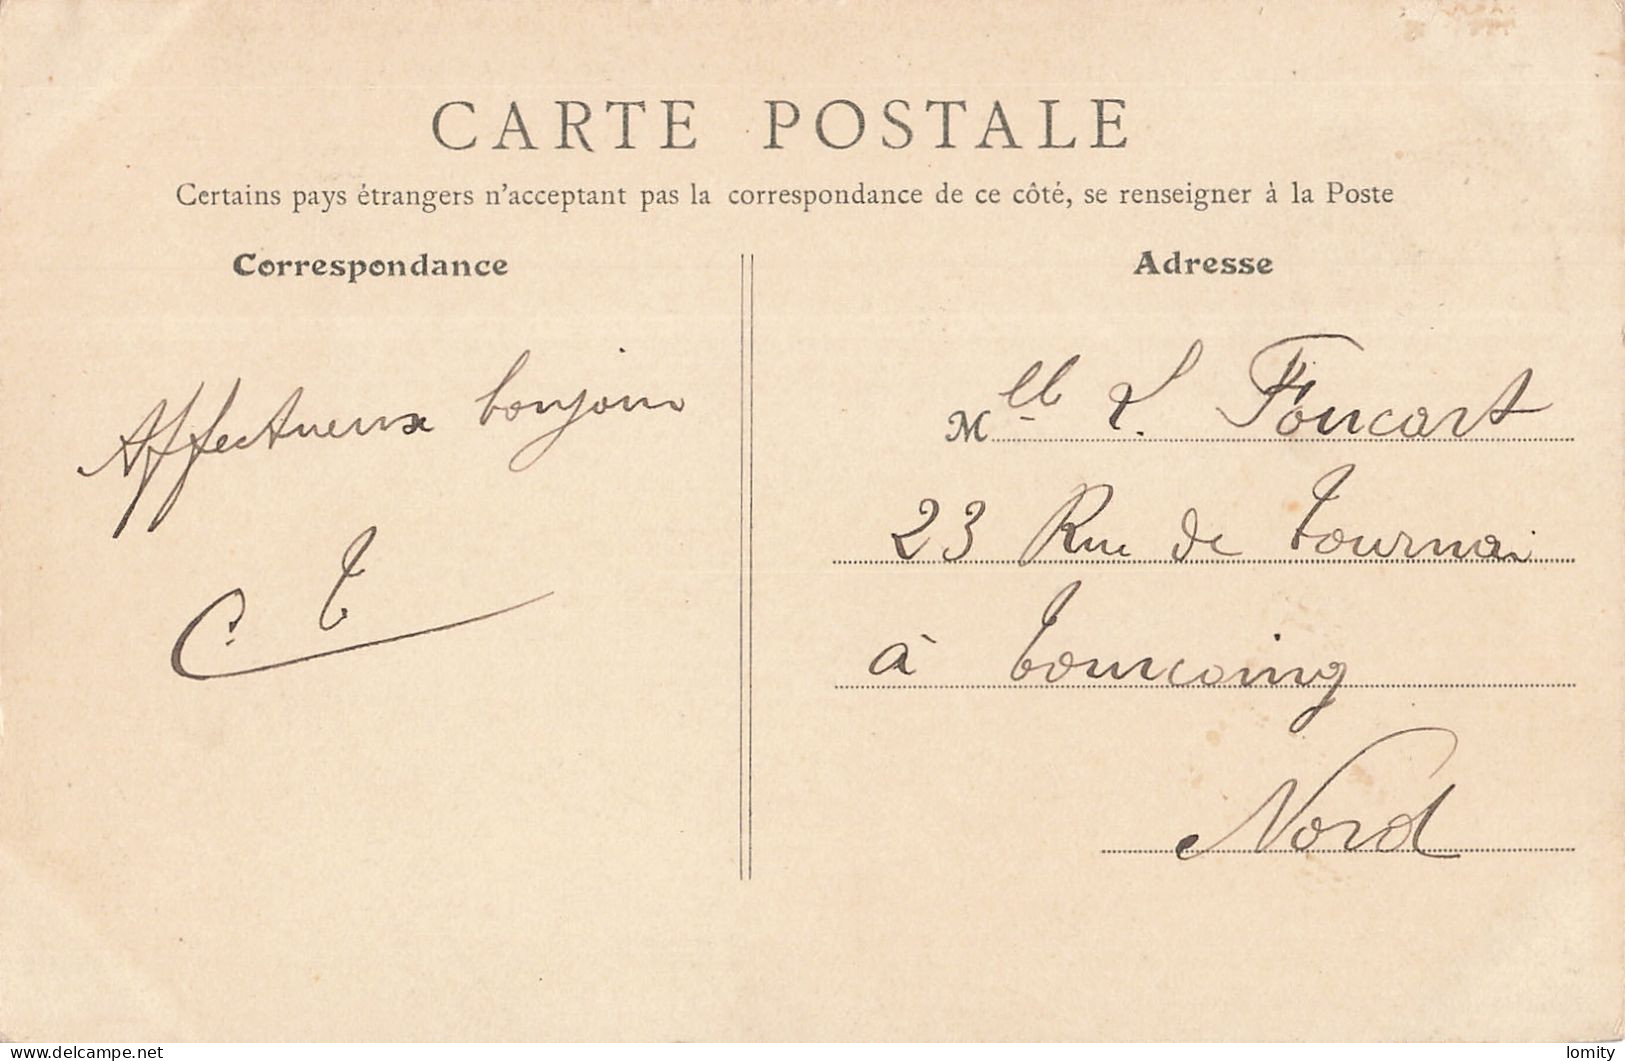 CARTE POSTALE
Certains pays étrangers n'acceptant pas la correspondance de ce côté, se renseigner à la Poste
Correspondance
Affectueux bonjour
C. T
Adresse
Mlle L. Foucart
23 Rue de Tournai
à Tourcoing
Nord
delcampe.net
lomity